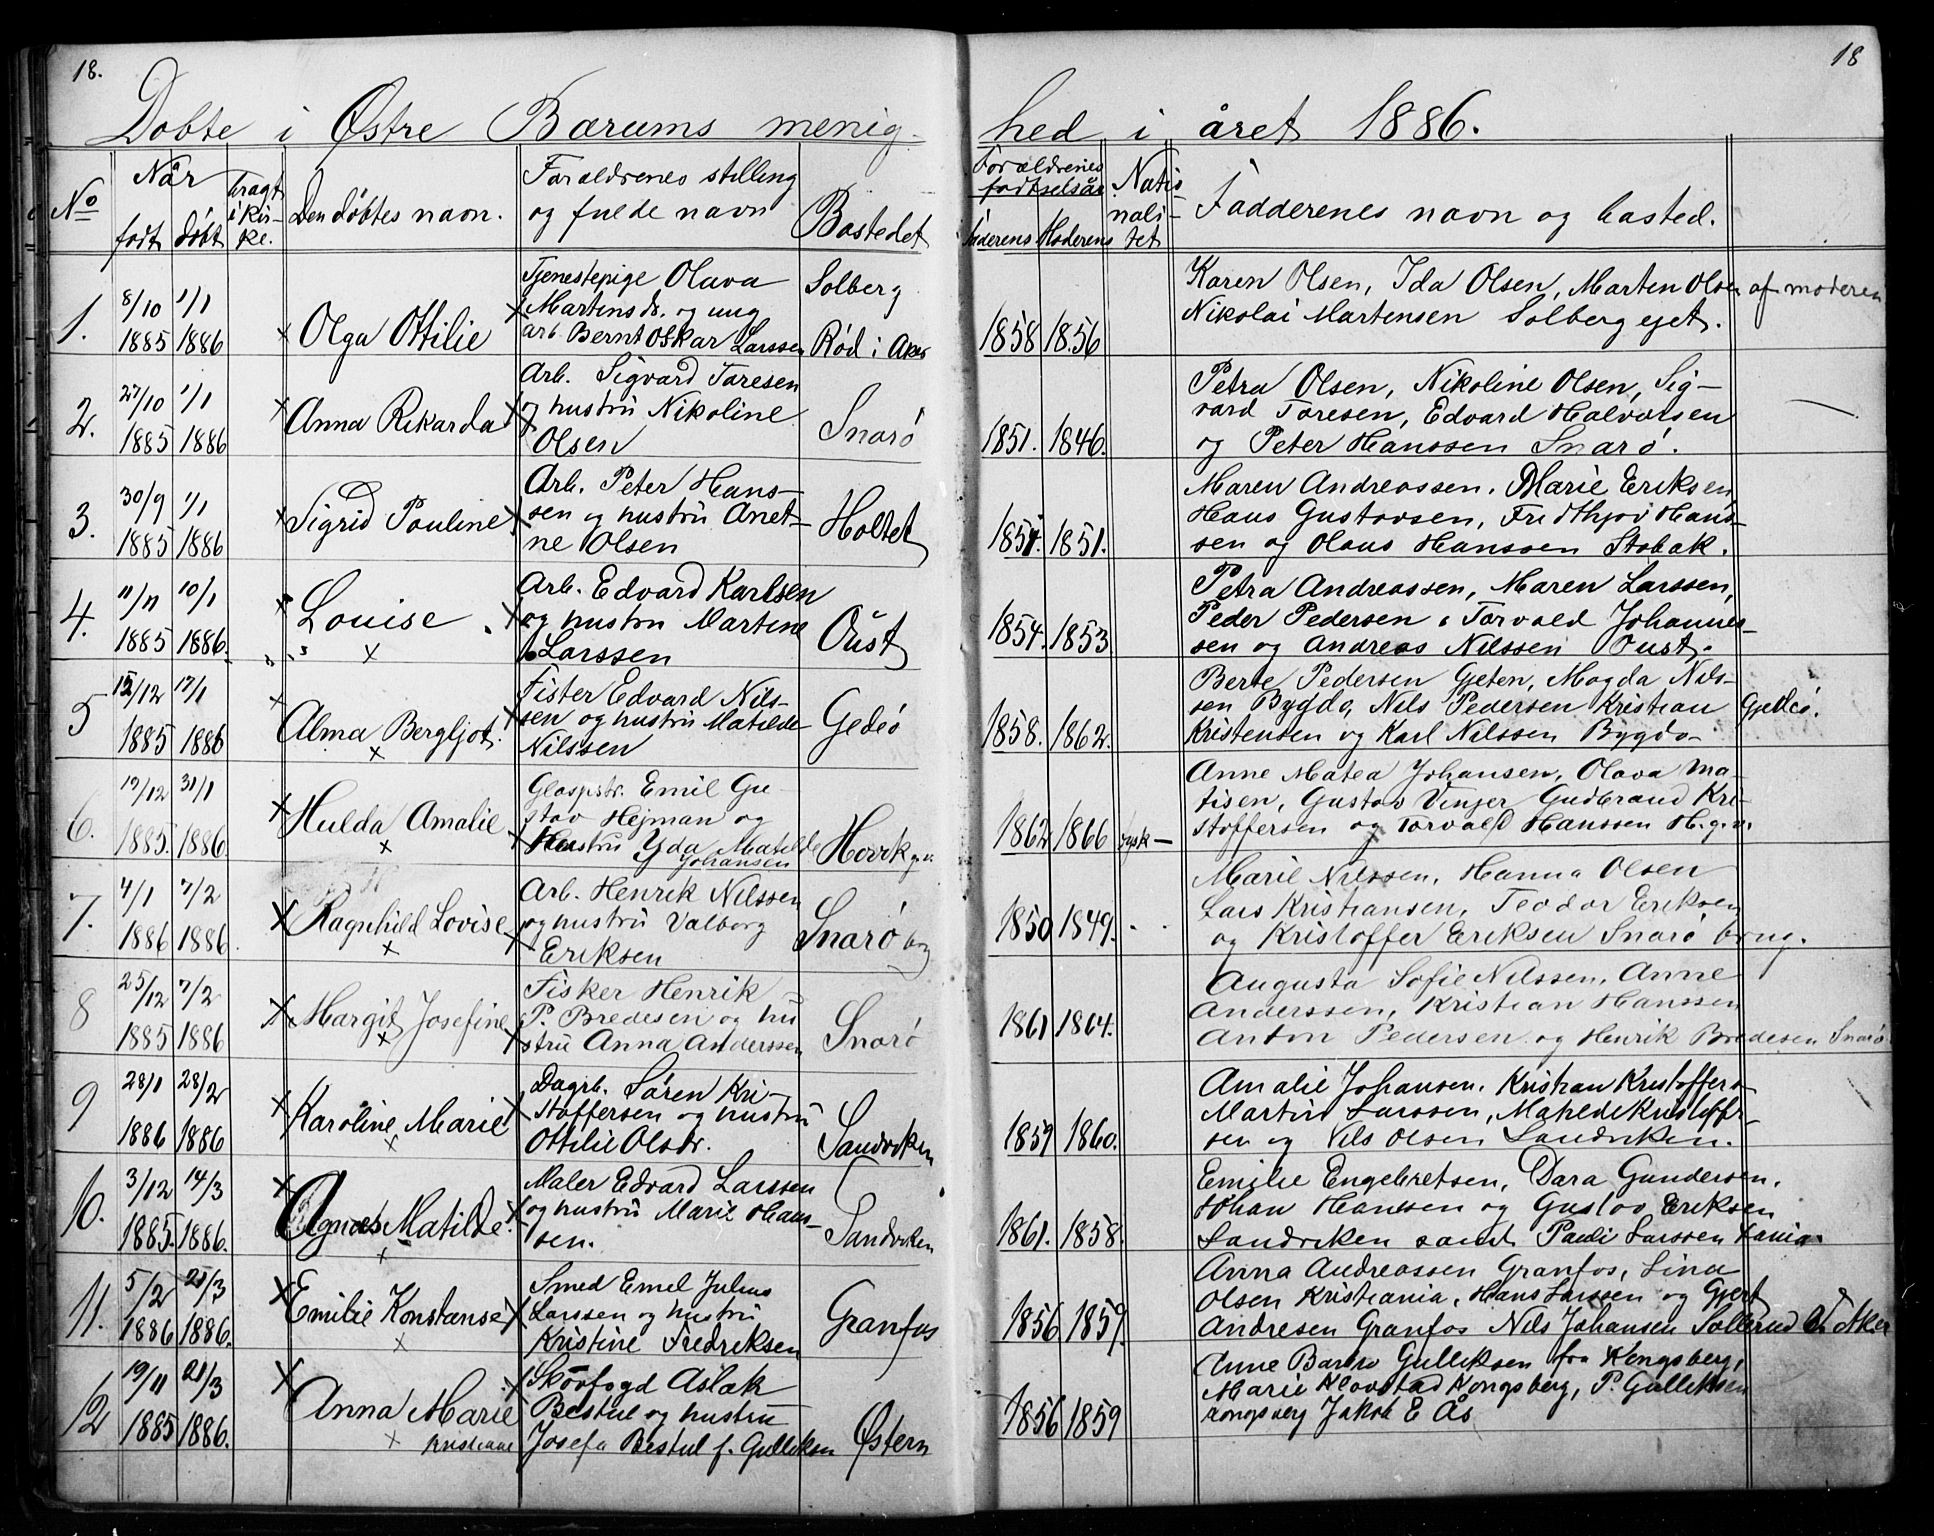 18.
18
Døbte i Østre Bærums menig-
hed i året 1886.
No
Når
født
døbt
bragt
i kir-
ke.
Den døbtes navn.
Forældrenes stilling
og fulde navn
Bostedet
Forældrenes
fødselsår
Faderens
Moderens
Natio
nali-
tet
Fadderenes navn og bosted.
1.
8/10 1/1
1885 1886
Olga Ottilie
Tjenestepige Olava
Martensdr. og ung
arb. Bernt Oskar Larssen
Solberg
Rød i Aker
1858 1856
Karen Olsen, Ida Olsen, Marten Olsen af moderen
Nikolai Martensen Solberg ejet.
2.
27/10 1/1
1885 1886
Anna Rikarda
Arb. Sigvard Toresen
og hustru Nikoline
Olsen
Snarø
1851. 1846.
Petra Olsen, Nikoline Olsen, Sig-
vard Toresen, Edvard Halvorsen
og Peter Hanssen Snarø.
3.
30/9 1/1
1885 1886
Sigrid Pouline
Arb. Peter Hans-
sen og hustru Anet-
ne Olsen
Holtet
1851. 1851.
Maren Andreassen, Marie Eriksen,
Hans Gustavsen, Fridthjov Hans-
sen og Olaus Hanssen Stabak.
4.
11/11 10/1
1885 1886.
Louise
Arb. Edvard Karlsen
og hustru Martine
Larssen
Oust
1854. 1853
Petra Andreassen, Maren Larssen,
Peder Pedersen, Torvald Johannes-
sen og Andreas Nilssen Oust.
5
15/12 17/1
1885 1886
Alma Bergljot.
Fisker Edvard Nils-
sen og hustru Matilde
Nilssen
Gedeø
1858. 1862.
Berte Pedersen Geten, Magda Nils-
sen Bygdø, Nils Pedersen Kristian Gjetteø.
Kristensen og Karl Nilssen Bygdø
6.
19/12 31/1
1885. 1886.
Hulda Amalie
Glaspstr. Emil Gu-
stav Hejman og
Hustru Yda Matilde
Johansen
Høvik gv.
1862 1866 tysk-
Anne Matea Johansen, Olava Ma-
tisen, Gustav Vinger Gudbrand Kri-
stoffersen og Torvald Hanssen H.g.v.
7.
4/1 7/2
1886 1886.
Ragnhild Lovise
Arb. Henrik Nilssen
og hustru Valborg
Eriksen
Snarø brg
1850 1849.
Marie Nilssen, Hanna Olsen
Lars Kristiansen, Teodor Eriksen
og Kristoffer Eriksen Snarø brug.
8
25/12 7/2
1885 1886
Margit Josefine
Fisker Henrik
P. Bredesen og hu
stru Anna Anderssen
Snarø
1861 1864.
Augusta Sofie Nilssen, Anne
Anderssen, Kristian Hanssen
Anton Pedersen og Henrik Bredesen Snarø
9
28/1 28/2
1886 1886
Karoline Marie
Dagrb. Søren Kri-
stoffersen og hustru
Ottilie Olsdr.
Sandviken
1859 1860.
Amalie Johansen, Kristian Kristoffers
Martin Larssen, Matilde Kristoffer-
sen og Nils Olsen Sandviken.
10.
3/12 14/3
1885. 1886.
Agnes Matilde
Maler Edvard Larssen
og hustru Marie Hans-
sen.
Sandviken
1861. 1858.
Emilie Engebretsen, Dara Gundersen,
Johan Hanssen og Gustav Eriksen
Sandviken samt Pauli Larssen
11.
5/2 21/3
1886 1886.
Emilie Konstanse
Smed Emil Julius
Larssen og hustru
Kristine Fredriksen
Granfos
1856 1859.
Anna Andreassen Granfos, Lina
Olsen Kristiania, Hans Larssen og Gjert
Andresen Granfos Nils Johansen Sollerud i Aker
12
19/11 21/3
1885 1886.
Anna Marie
Kristiane
Skovfogd Aslak
Bestul og hustru
Josefa Bestul f. Gulliksen
Østern
1856 1859
Anne Gulliksen fra Kongsberg,
Marie Klovstad Kongsberg, P. Gulliksen
Kongsberg Jakob E Ås